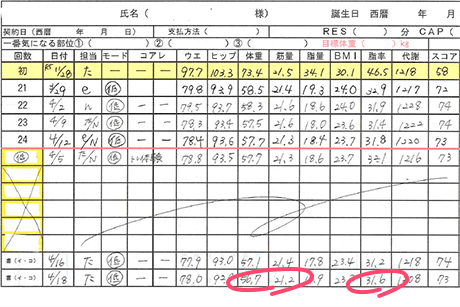 氏名（　　　　　　　　様）　　　誕生日　西暦　　年　　月
契約日（　　　　　）支払方法（　　　　　　）　　RES（　　）分 CAP（
一番気になる部位①（　　　　）②（　　　　）③（　　　　）目標体重（　　）kg
回数 日付 担当 モード コアレ ウエ ヒップ 体重 筋量 脂量 BMI 脂率 代謝 スコア
初 た － － － 97.7 103.3 73.4 21.5 34.1 30.1 46.5 1218 58
21 3/29 e 低 － － 79.8 93.9 58.5 21.4 19.3 24.0 32.9 1217 72
22 4/2 n 低 － － 79.5 93.7 58.3 21.6 18.6 24.0 31.9 1228 74
23 4/9 低 － － 78.3 93.4 57.5 21.6 18.0 23.6 31.4 1222 74
24 4/12 低 － － 78.4 93.6 57.7 21.3 18.4 23.7 31.8 1220 73
低 4/5 た/N 低 78.8 93.5 57.7 21.3 18.6 23.7 32.1 1216 73
(イ・コ) 4/16 た 低 － － 77.9 93.0 57.1 21.4 17.8 23.4 31.2 1218 74
(イ・コ) 4/18 た 低 － － 78.0 56.7 21.2 31.6 1208 73